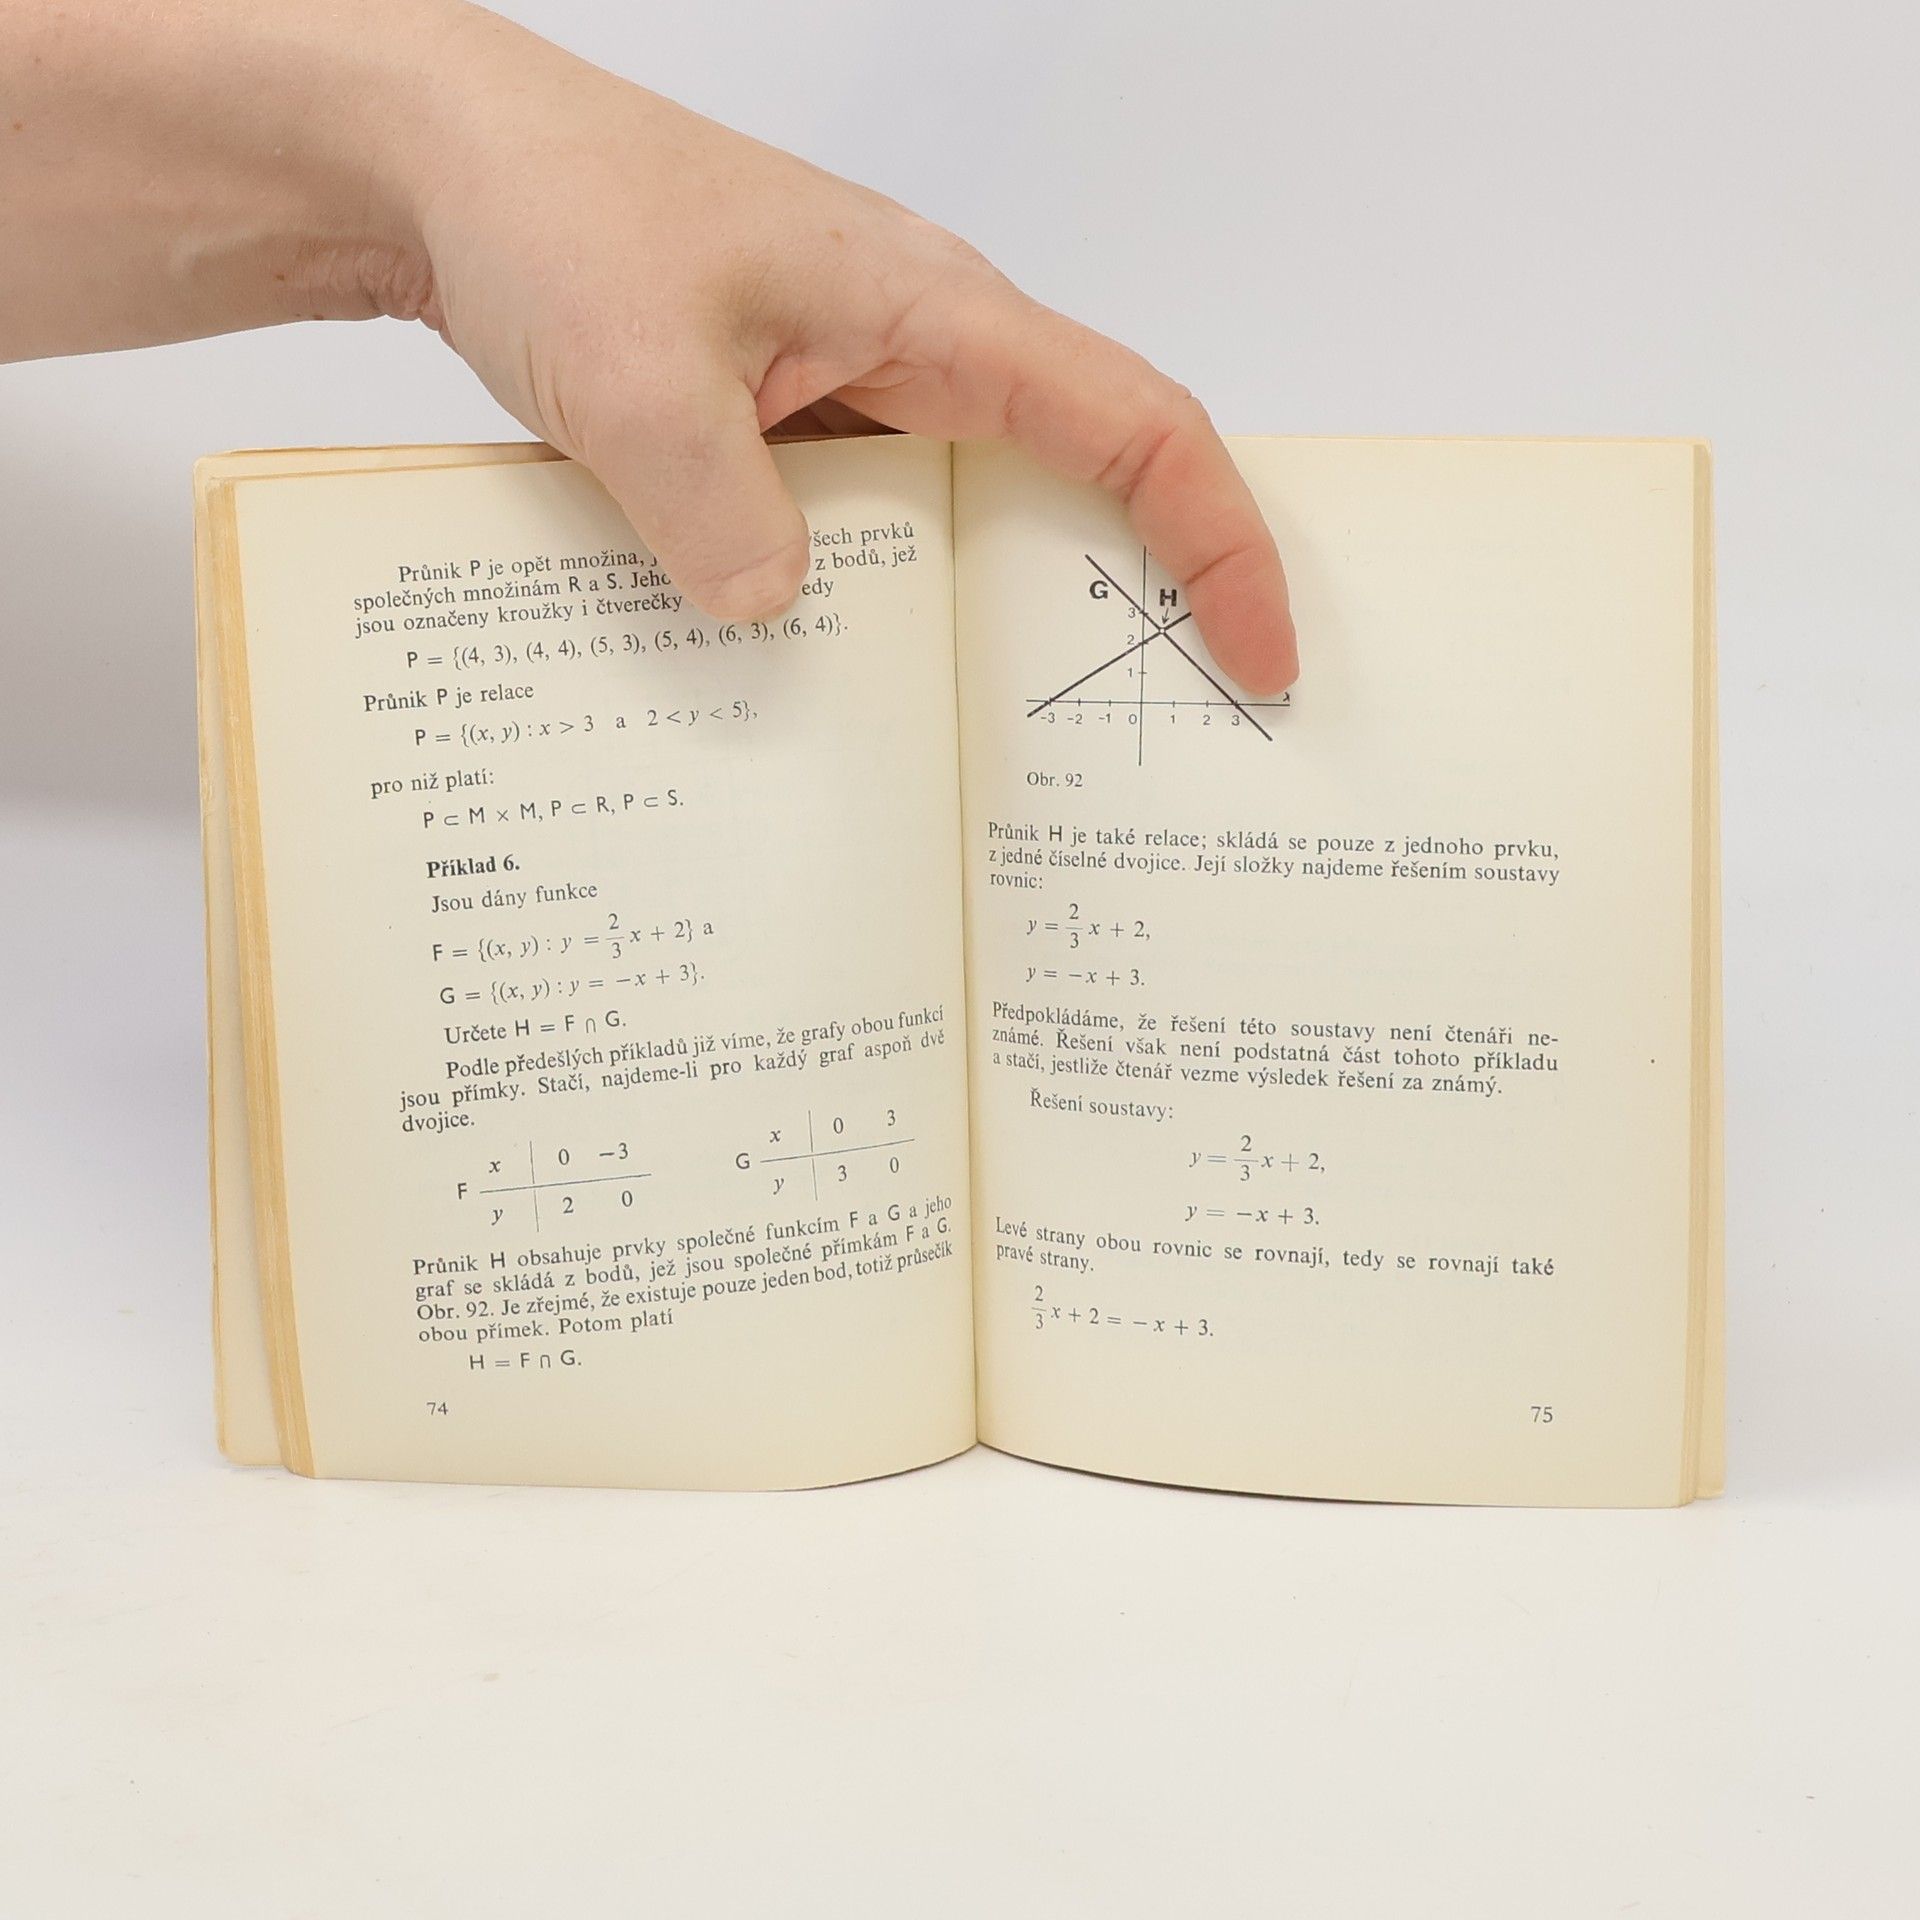 Průnik P je opět množina, všech prvků
společných množinám R a S. z bodů, jež
jsou označeny kroužky i čtverečky
P = {(4, 3), (4, 4), (5, 3), (5, 4), (6, 3), (6, 4)}.
Průnik P je relace
P = {(x, y) : x > 3 a 2 < y < 5},
pro niž platí:
P ⊂ M × M, P ⊂ R, P ⊂ S.
Příklad 6.
Jsou dány funkce
F = {(x, y) : y = 2/3 x + 2} a
G = {(x, y) : y = −x + 3}.
Určete H = F ∩ G.
Podle předešlých příkladů již víme, že grafy obou funkcí
jsou přímky. Stačí, najdeme-li pro každý graf aspoň dvě
dvojice.
x 0 −3
F
y 2 0
x 0 3
G
y 3 0
Průnik H obsahuje prvky společné funkcím F a G a jeho
graf se skládá z bodů, jež jsou společné přímkám F a G.
Obr. 92. Je zřejmé, že existuje pouze jeden bod, totiž průsečík
obou přímek. Potom platí
H = F ∩ G.
74
G H
3
2
1
-3 -2 -1 0 1 2 3
Obr. 92
Průnik H je také relace; skládá se pouze z jednoho prvku,
z jedné číselné dvojice. Její složky najdeme řešením soustavy
rovnic:
y = 2/3 x + 2,
y = −x + 3.
Předpokládáme, že řešení této soustavy není čtenáři ne-
známé. Řešení však není podstatná část tohoto příkladu
a stačí, jestliže čtenář vezme výsledek řešení za známý.
Řešení soustavy:
y = 2/3 x + 2,
y = −x + 3.
Levé strany obou rovnic se rovnají, tedy se rovnají také
pravé strany.
2/3 x + 2 = − x + 3.
75